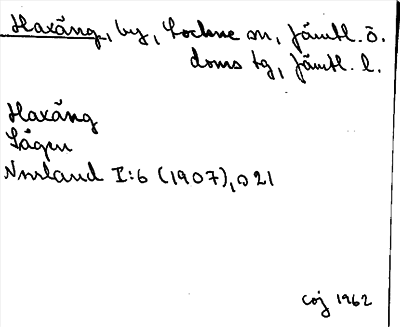 Haxäng, by, Lockne sn, Jämtl. ö.
doms tg, Jämtl. l.
Haxäng
Sägen
Norrland I:6 (1907), s 21
coj 1962